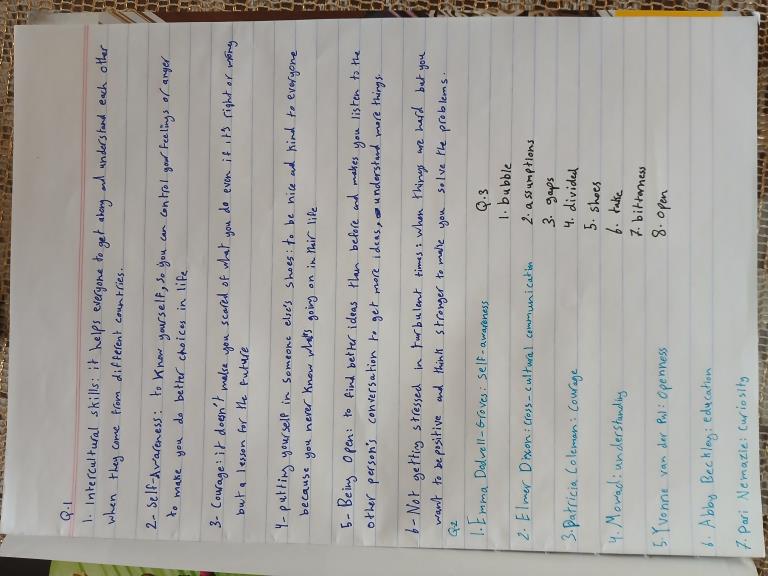 Q.1
1. Intercultural skills: it helps everyone to get along ad understand each other
when they come from different countries.
2- Self-Awareness: to know yourself, so you can control your feelings or anger
to make you do better choices in life
3- Courage: it doesn't make you scared of what you do even if it's right or wrong
but a lesson for the future
4- putting yourself in someone else's shoes: to be nice ad kind to everyone
because you never know what's going on in their life
5- Being Open: to find better ideas than before and makes you listen to the
other person's conversation to get more ideas, understand more things.
6- Not getting stressed in turbulent times: when things are hard but you
want to be positive and think stronger to make you solve the problems.
Q2
1. Emma Dalwell-Groves: Self-awareness
2. Elmer Dixon: cross-cultural communication
3. Patricia Coleman: Courage
4. Mourad: understanding
5. Yvonne van der Pol: Openness
6. Abby Beckley: education
7. Pari Nemazie: Curiosity
Q.3
1. bubble
2. assumptions
3. gaps
4. divided
5. shoes
6. take
7. bitterness
8. open